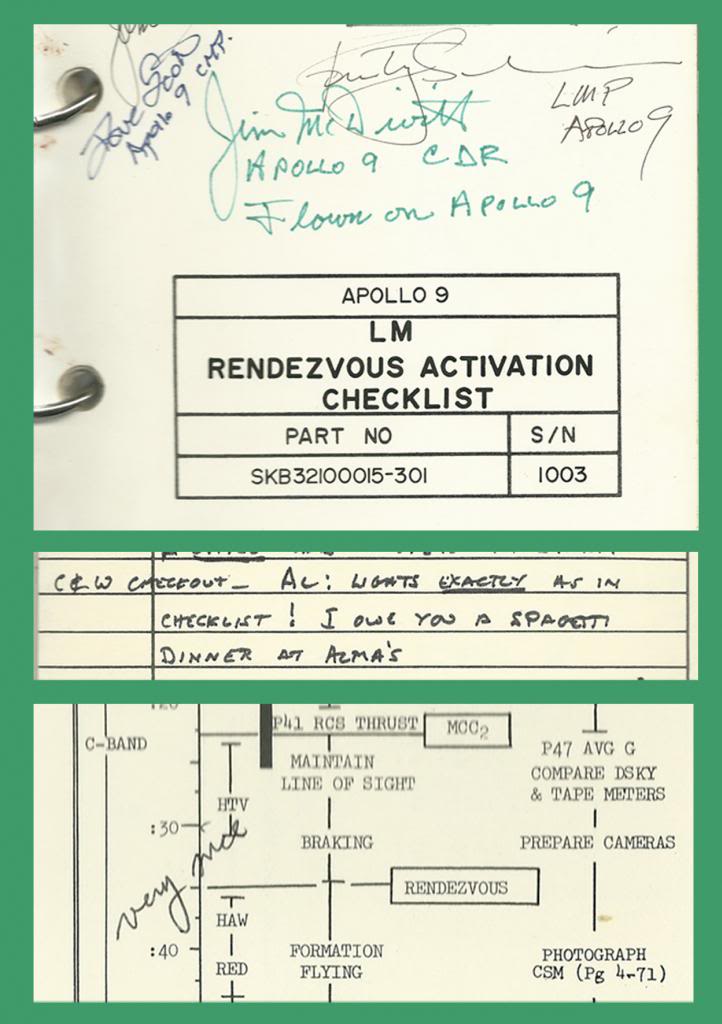 Dave Scott
Apollo 9 CMP.
LMP
APOLLO 9
Jim McDivitt
APOLLO 9 CDR
Flown on APOLLO 9
APOLLO 9
LM
RENDEZVOUS ACTIVATION
CHECKLIST
PART NO S/N
SKB32100015-301 1003
C&W CHECKOUT_ AL: LIGHTS EXACTLY AS IN
CHECKLIST! I OWE YOU A SPAGETTI
DINNER AT ALMA'S
P41 RCS THRUST MCC2
C-BAND
P47 AVG G
MAINTAIN
LINE OF SIGHT
COMPARE DSKY
& TAPE METERS
HTV
:30
BRAKING
PREPARE CAMERAS
very nice
RENDEZVOUS
HAW
:40
FORMATION
FLYING
PHOTOGRAPH
CSM (Pg 4-71)
RED